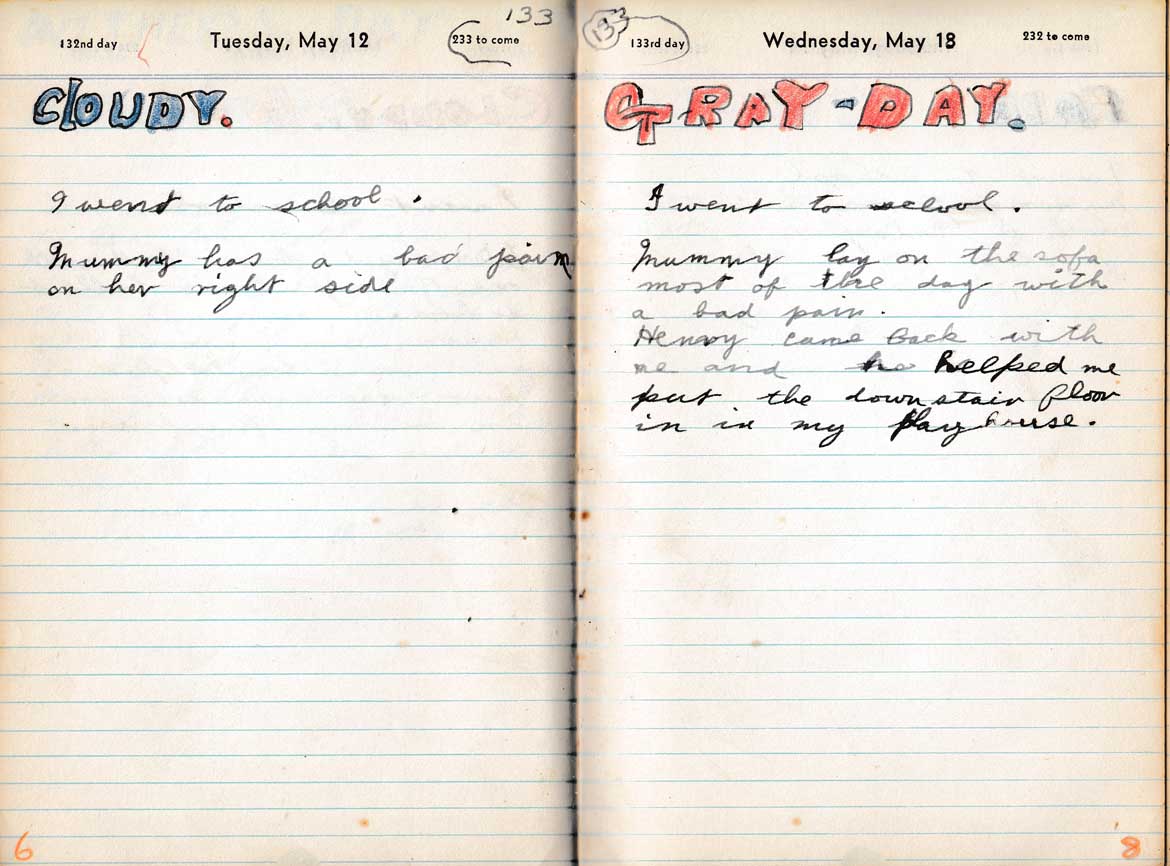 133
132nd day Tuesday, May 12 233 to come
CLOUDY.
I went to school.
Mummy has a bad pain
on her right side
6
133
133rd day Wednesday, May 13 232 to come
GRAY-DAY.
I went to school.
Mummy lay on the sofa
most of the day with
a bad pain.
Henry came back with
me and he helped me
put the downstair floor
in in my play house.
8